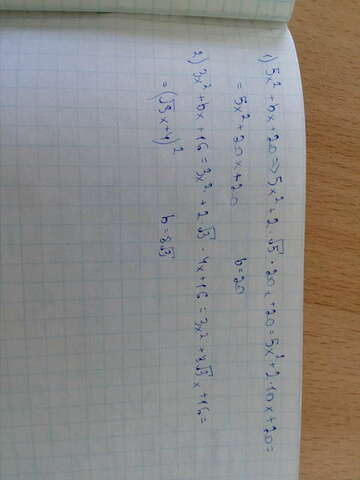 1) 5x² + bx + 20 => 5x² + 2 · √5 · 20x + 20 = 5x² + 2·10x + 20 =
= 5x² + 20x + 20 b = 20
2) 3x² + bx + 16 = 3x² + 2√3 · 4x + 16 = 3x² + 8√3x + 16 =
= (√3x + 4)² b = 8√3